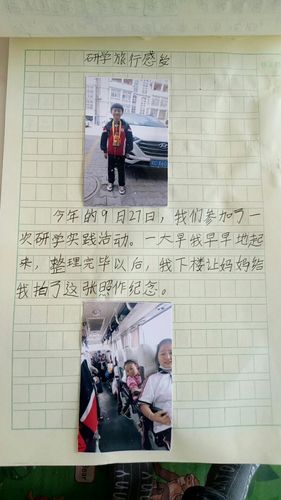 研学旅行感受
今年的9月27日，我们参加了一
次研学实践活动。一大早我早早地起
来，整理完毕以后，我下楼让妈妈给
我拍了这张照作纪念。